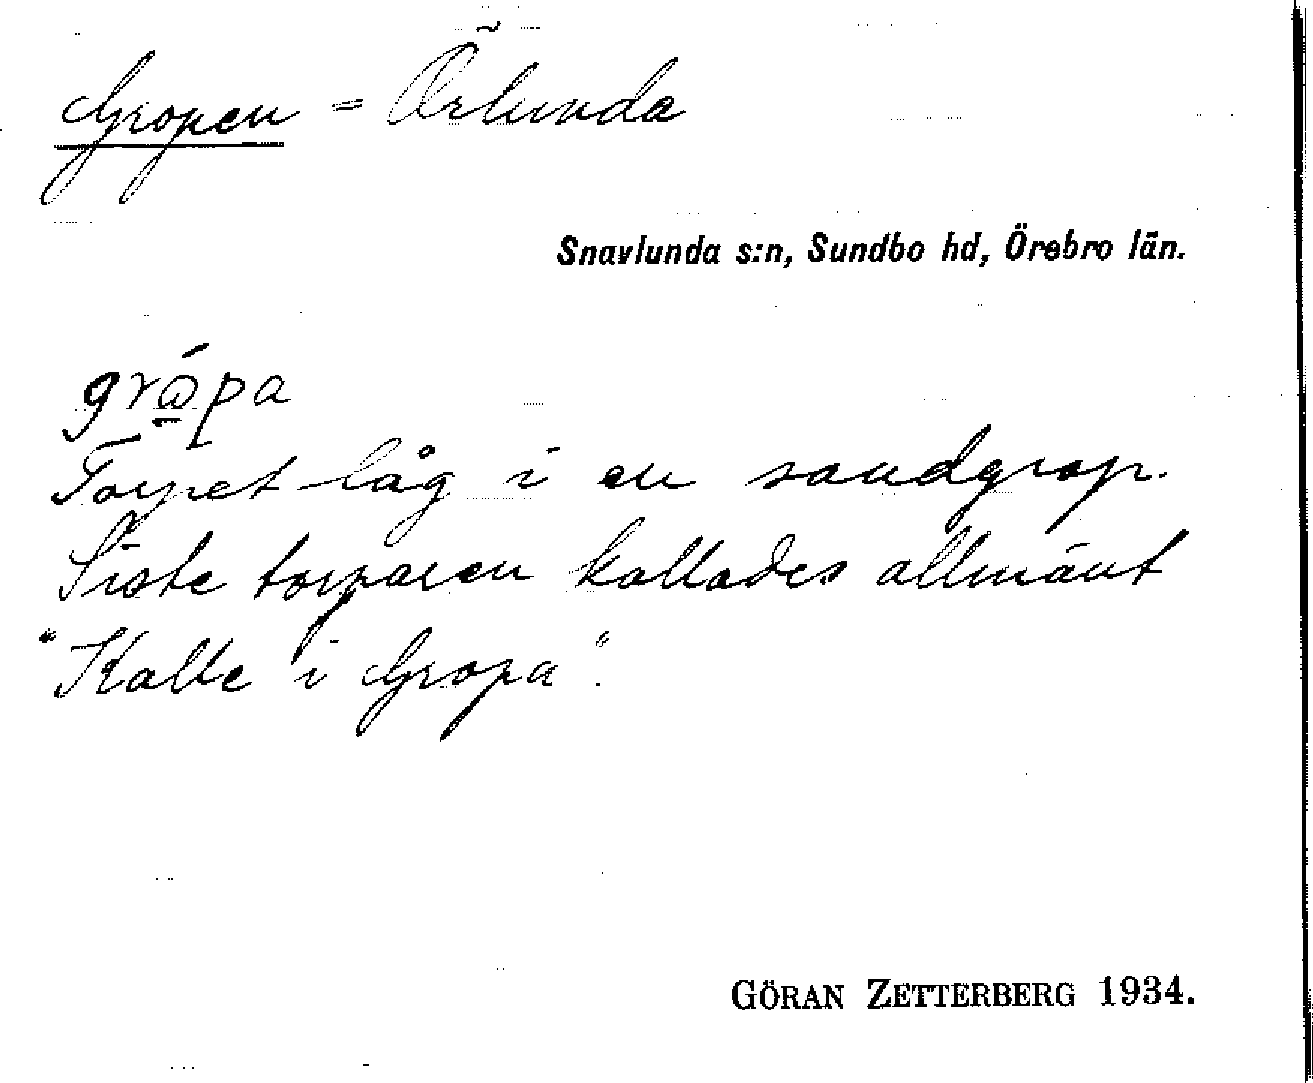 Gropen = Örlunda
Snavlunda s:n, Sundbo hd, Örebro län.
grώ̲pa
Torpet låg i en sandgrop.
Siste torparen kallades allmänt
"Kalle i Gropa".
GÖRAN ZETTERBERG 1934.